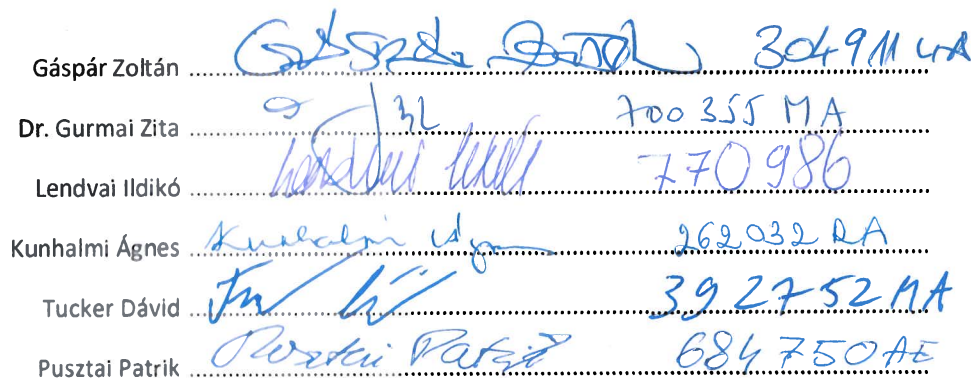 Gáspár Zoltán Gáspár Zoltán 304911 LA
Dr. Gurmai Zita 700355 MA
Lendvai Ildikó Lendvai Ildikó 770986
Kunhalmi Ágnes Kunhalmi Ágnes 262032 RA
Tucker Dávid 392752 MA
Pusztai Patrik Pusztai Patrik 684750 AE